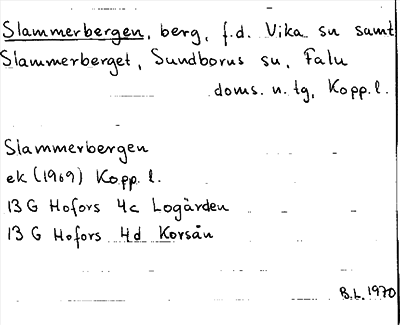 Slammerbergen, berg, f.d. Vika sn samt
Slammerberget, Sundborns sn, Falu
doms. n. tg, Kopp. l.
Slammerbergen
ek (1969) Kopp. l.
13 G Hofors 4c Logården
13 G Hofors 4d Korsån
B.L. 1970